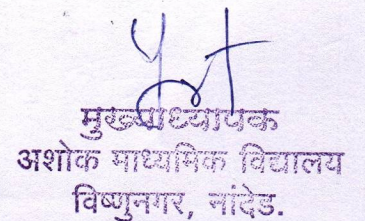 मुख्याध्यापक
अशोक माध्यमिक विद्यालय
विष्णुनगर, नांदेड.